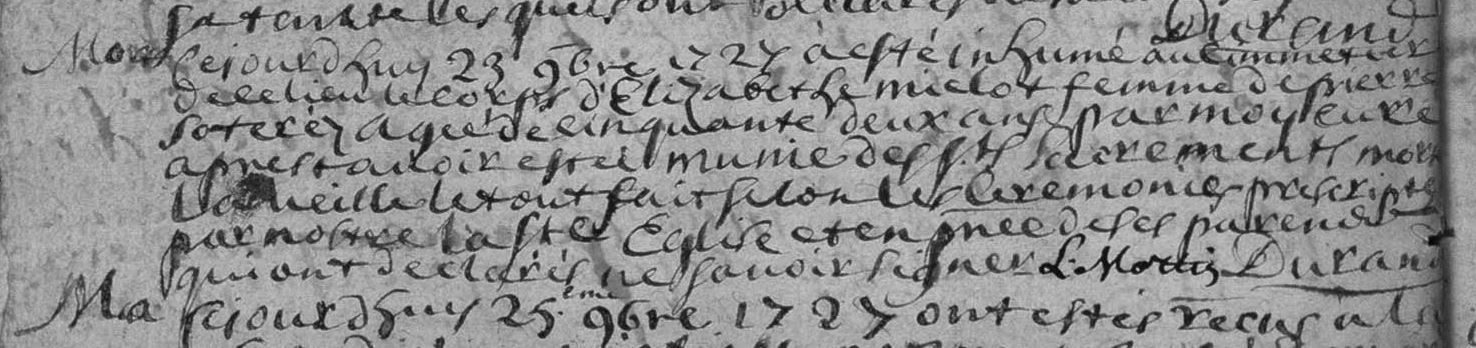 Durand
Mort Cejourdhuy 23 9bre 1727 a esté inhumé au Cimmetier
de ce lieu le corps d'Elizabethe mielot femme de pierre
soterez agée de cinquante deux ans par moy Cure
aprest avoir estéé munie des Sts Sacrements mort
la veille le tout fait selon les Ceremonies prescripte
par nostre Eglise et en pnce de ses parends
qui ont declarés ne savoir signer Durand
Ma Cejourdhuy 25eme 9bre 1727 ont estes recus a la